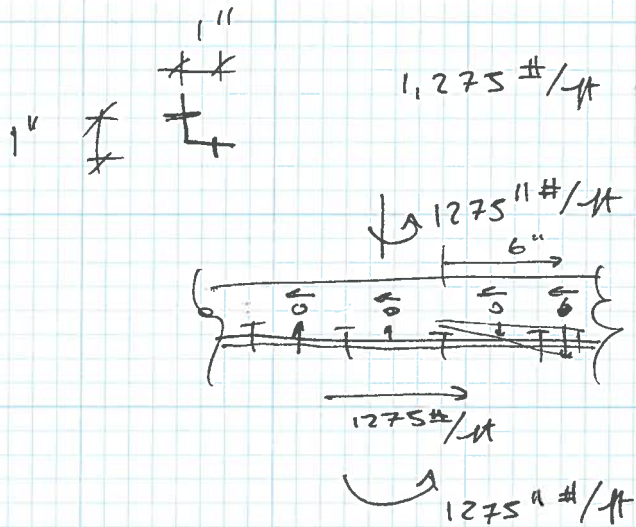 1"
1,275 #/ft
1"
1275 "#/ft
6"
1275 #/ft
1275 "#/ft